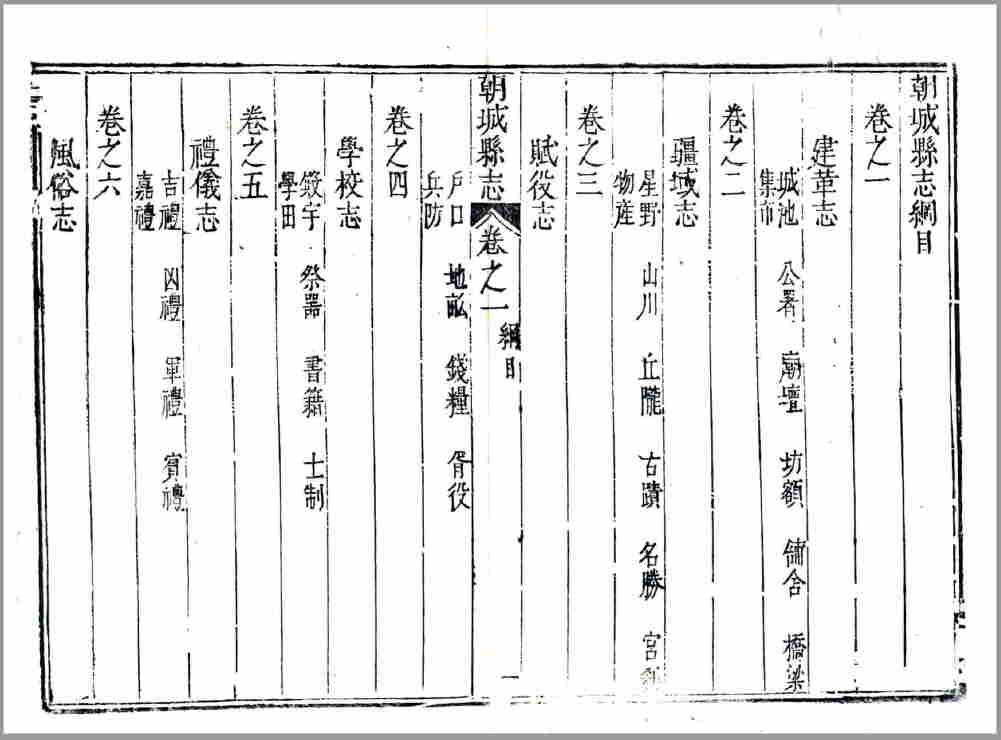 朝城縣志綱目
卷之一
建革志
城池 公署 廟壇 坊額 舖舍 橋梁
集市
卷之二
疆域志
星野 山川 丘隴 古蹟 名勝 宮
物産
卷之三
賦役志
朝城縣志 卷之一 綱目 一
戶口 地畝 錢糧 胥役
兵防
卷之四
學校志
宇 祭器 書籍 士制
學田
卷之五
禮儀志
吉禮 凶禮 軍禮 賓禮
嘉禮
卷之六
風俗志